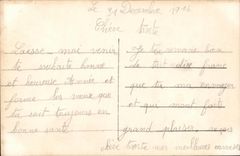 Le 31 Décembre 1916
Chère tante
Laisse-moi venir
te souhaité bonne
et heureuse Année et
forme les voeux que
tu soit toujours en
bonne santé.
Je te remercie bien
de tout
que tu ma envoyer
et qui mont fait
grand plaisir. reçois
chère tante mes meilleures caresses